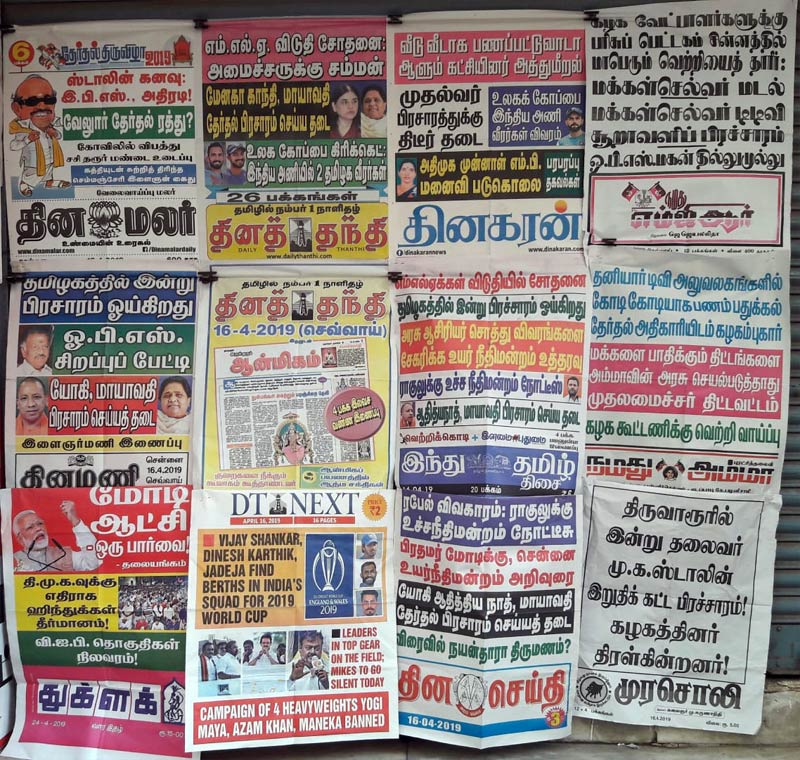 6
தேர்தல் திருவிழா 2019
ஸ்டாலின் கனவு:
இ.பி.எஸ்., அதிரடி!
வேலூர் தேர்தல் ரத்து?
கோவிலில் விபத்து
சசி தரூர் மண்டை உடைப்பு
கத்தியுடன் சுற்றித் திரிந்த
செம்மஞ்சேரி இளைஞன் கைது
வேலைவாய்ப்பு மலர்
தின மலர்
உண்மையின் உரைகல்
www.dinamalar.com
/Dinamalardaily
எம்.எல்.ஏ. விடுதி சோதனை:
அமைச்சருக்கு சம்மன்
மேனகா காந்தி, மாயாவதி
தேர்தல் பிரசாரம் செய்ய தடை
உலக கோப்பை கிரிக்கெட்:
இந்திய அணியில் 2 தமிழக வீரர்கள்
26 பக்கங்கள்
தமிழில் நம்பர் 1 நாளிதழ்
தினத் தந்தி
DAILY THANTHI
www.dailythanthi.com
வீடு வீடாக பணப்பட்டுவாடா
ஆளும் கட்சியினர் அத்துமீறல்
முதல்வர்
பிரசாரத்துக்கு
திடீர் தடை
உலகக் கோப்பை
இந்திய அணி
வீரர்கள் விவரம்
அதிமுக முன்னாள் எம்.பி.
மனைவி படுகொலை
பரபரப்பு
தகவல்கள்
தினகரன்
/dinakarannews
www.dinakaran.com
கழக வேட்பாளர்களுக்கு
பரிசுப் பெட்டகம் சின்னத்தில்
மாபெரும் வெற்றியைத் தாரீர்:
மக்கள்செல்வர் மடல்
மக்கள்செல்வர் டிடிவி
சூறாவளிப் பிரச்சாரம்
ஓ.பி.எஸ்.மகன் தில்லுமுல்லு
நமது
எம்ஜிஆர்
ஜெ.ஜெயலலிதா
தமிழகத்தில் இன்று
பிரசாரம் ஓய்கிறது
ஓ.பி.எஸ்.
சிறப்புப் பேட்டி
யோகி, மாயாவதி
பிரசாரம் செய்யத் தடை
இளைஞர்மணி இணைப்பு
தினமணி
சென்னை
16.4.2019
செவ்வாய்
தமிழில் நம்பர் 1 நாளிதழ்
தினத் தந்தி
16-4-2019 (செவ்வாய்)
இதழுடன்
ஆன்மிகம்
4 பக்க இலவச
வண்ண இணைப்பு
எம்எல்ஏக்கள் விடுதியில் சோதனை
தமிழகத்தில் இன்று பிரச்சாரம் ஓய்கிறது
அரசு ஆசிரியர் சொத்து விவரங்களை
சேகரிக்க உயர் நீதிமன்றம் உத்தரவு
ராகுலுக்கு உச்ச நீதிமன்றம் நோட்டீஸ்
ஆதித்யநாத், மாயாவதி பிரசாரம் செய்ய தடை
வெற்றிக்கொடி + இளமை புதுமை
இந்து தமிழ்
திசை
20 பக்கம்
தனியார் டிவி அலுவலகங்களில்
கோடி கோடியாக பணம் பதுக்கல்
தேர்தல் அதிகாரியிடம் கழகம்புகார்
மக்களை பாதிக்கும் திட்டங்களை
அம்மாவின் அரசு செயல்படுத்தாது
முதலமைச்சர் திட்டவட்டம்
கழக கூட்டணிக்கு வெற்றி வாய்ப்பு
நமது அம்மா
மோடி
ஆட்சி
-ஒரு பார்வை!
- தலையங்கம்
தி.மு.க.வுக்கு
எதிராக
ஹிந்துக்கள்
தீர்மானம்!
வி.ஐ.பி. தொகுதிகள்
நிலவரம்!
துக்ளக்
24-4-2019
வார இதழ்
ரூ.15-00
DT NEXT
PRICE ₹2
APRIL 16, 2019
16 PAGES
VIJAY SHANKAR,
DINESH KARTHIK,
JADEJA FIND
BERTHS IN INDIA'S
SQUAD FOR 2019
WORLD CUP
ENGLAND & WALES
2019
LEADERS
IN TOP GEAR
ON THE FIELD;
MIKES TO GO
SILENT TODAY
CAMPAIGN OF 4 HEAVYWEIGHTS YOGI
MAYA, AZAM KHAN, MANEKA BANNED
ரபேல் விவகாரம்: ராகுலுக்கு
உச்சநீதிமன்றம் நோட்டீசு
பிரதமர் மோடிக்கு, சென்னை
உயர்நீதிமன்றம் அறிவுரை
யோகி ஆதித்ய நாத், மாயாவதி
தேர்தல் பிரசாரம் செய்யத் தடை
விரைவில் நயன்தாரா திருமணம்?
தின செய்தி
16-04-2019
3
திருவாரூரில்
இன்று தலைவர்
மு.க.ஸ்டாலின்
இறுதிக் கட்ட பிரச்சாரம்!
கழகத்தினர்
திரள்கின்றனர்!
முரசொலி
12 + 4 பக்கங்கள்
16.4.2019
விலை ரூ. 5.00